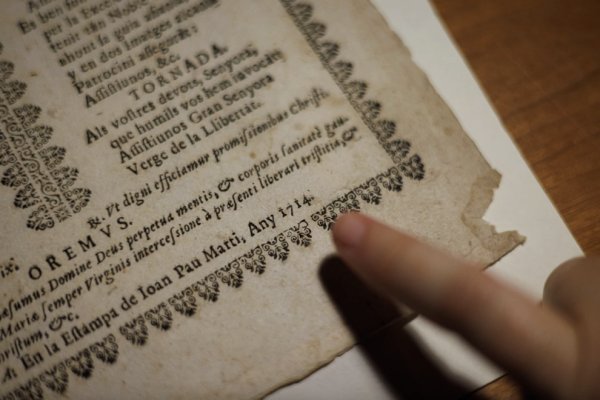 En ben for
per la Excel
tenir tan Nobles
nhont la guia
y en dos Imatges
Patrocini allegarse:
Assistiunos, &c.
TORNADA.
Als vostres devots, Senyora,
que humils vos hem invocat,
Assistiunos Gran Senyora
Verge de la Llibertat.
&. Ut digni efficiamur promissionibus Christi.
OREMVS.
Domine Deus perpetua mentis, & corporis sanitate gau-
Mariæ semper Virginis intercessione à præsenti liberari tristitia, &
Christum, &c.
En la Estampa de Ioan Pau Marti, Any 1714.